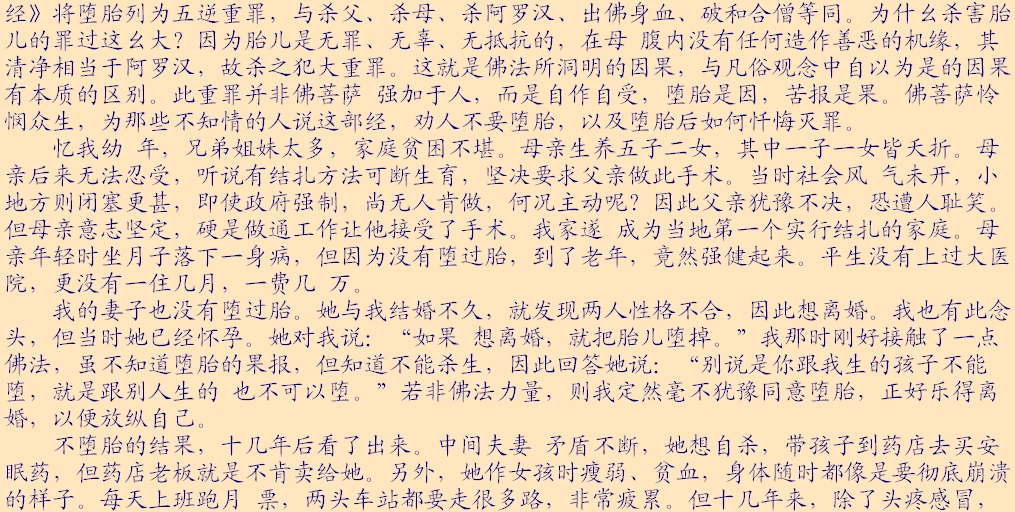 经》将堕胎列为五逆重罪，与杀父、杀母、杀阿罗汉、出佛身血、破和合僧等同。为什幺杀害胎
儿的罪过这幺大？因为胎儿是无罪、无辜、无抵抗的，在母 腹内没有任何造作善恶的机缘，其
清净相当于阿罗汉，故杀之犯大重罪。这就是佛法所洞明的因果，与凡俗观念中自以为是的因果
有本质的区别。此重罪并非佛菩萨 强加于人，而是自作自受，堕胎是因，苦报是果。佛菩萨怜
悯众生，为那些不知情的人说这部经，劝人不要堕胎，以及堕胎后如何忏悔灭罪。
忆我幼 年，兄弟姐妹太多，家庭贫困不堪。母亲生养五子二女，其中一子一女皆夭折。母
亲后来无法忍受，听说有结扎方法可断生育，坚决要求父亲做此手术。当时社会风 气未开，小
地方则闭塞更甚，即使政府强制，尚无人肯做，何况主动呢？因此父亲犹豫不决，恐遭人耻笑。
但母亲意志坚定，硬是做通工作让他接受了手术。我家遂 成为当地第一个实行结扎的家庭。母
亲年轻时坐月子落下一身病，但因为没有堕过胎，到了老年，竟然强健起来。平生没有上过大医
院，更没有一住几月，一费几 万。
我的妻子也没有堕过胎。她与我结婚不久，就发现两人性格不合，因此想离婚。我也有此念
头，但当时她已经怀孕。她对我说：“如果 想离婚，就把胎儿堕掉。”我那时刚好接触了一点
佛法，虽不知道堕胎的果报，但知道不能杀生，因此回答她说：“别说是你跟我生的孩子不能
堕，就是跟别人生的 也不可以堕。”若非佛法力量，则我定然毫不犹豫同意堕胎，正好乐得离
婚，以便放纵自己。
不堕胎的结果，十几年后看了出来。中间夫妻 矛盾不断，她想自杀，带孩子到药店去买安
眠药，但药店老板就是不肯卖给她。另外，她作女孩时瘦弱、贫血，身体随时都像是要彻底崩溃
的样子。每天上班跑月 票，两头车站都要走很多路，非常疲累。但十几年来，除了头疼感冒，